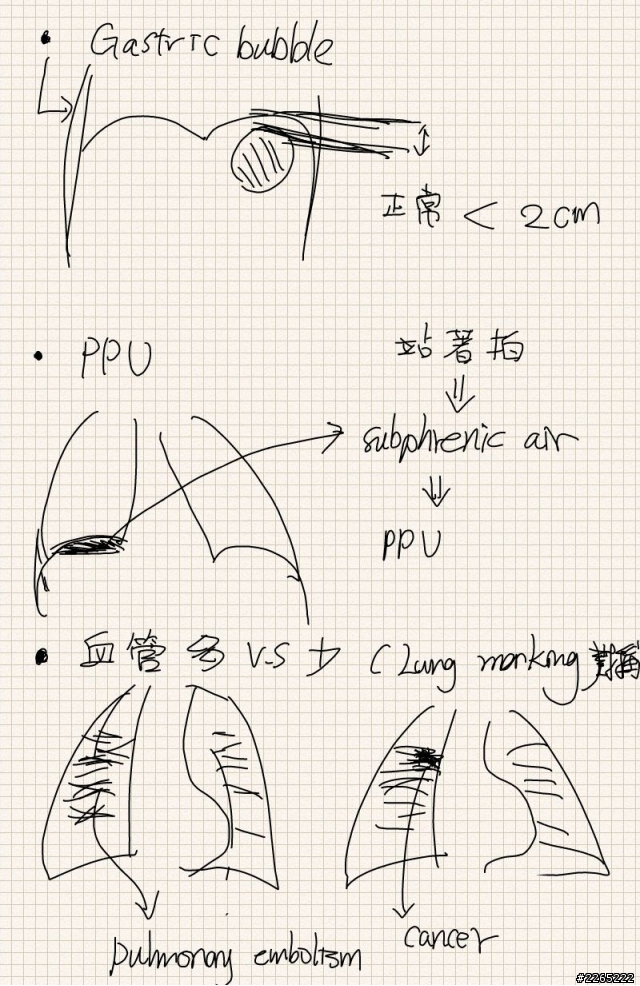 • Gastric bubble
正常 < 2cm
• PPU
站著拍
⇓
subphrenic air
⇓
PPU
• 血管多 V.S 少 (Lung marking
pulmonary embolism
cancer
#2265222